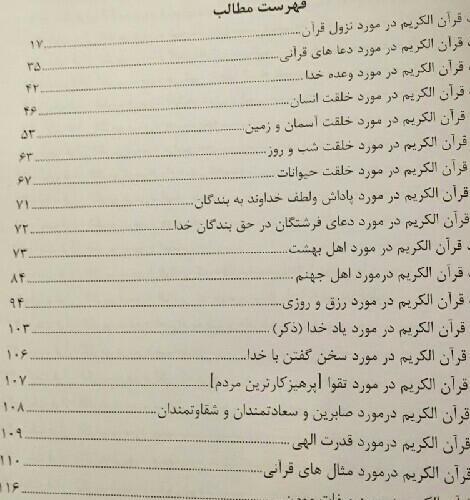 فهرست مطالب
قرآن الکریم در مورد نزول قرآن ۱۷
قرآن الکریم در مورد دعا های قرآنی ۳۵
قرآن الکریم در مورد وعده خدا ۴۲
قرآن الکریم در مورد خلقت انسان ۴۶
قرآن الکریم در مورد خلقت آسمان و زمین ۵۳
قرآن الکریم در مورد خلقت شب و روز ۶۳
قرآن الکریم در مورد خلقت حیوانات ۶۷
قرآن الکریم در مورد پاداش ولطف خداوند به بندگان ۷۱
قرآن الکریم در مورد دعای فرشتگان در حق بندگان خدا ۷۲
قرآن الکریم در مورد اهل بهشت ۷۳
قرآن الکریم درمورد اهل جهنم ۸۴
قرآن الکریم در مورد رزق و روزی ۹۴
قرآن الکریم در مورد یاد خدا (ذکر) ۱۰۳
قرآن الکریم در مورد سخن گفتن با خدا ۱۰۶
قرآن الکریم در مورد تقوا [پرهیزکارترین مردم] ۱۰۷
قرآن الکریم درمورد صابرین و سعادتمندان و شقاوتمندان ۱۰۸
قرآن الکریم درمورد قدرت الهی ۱۰۹
قرآن الکریم درمورد مثال های قرآنی ۱۱۰
۱۱۶